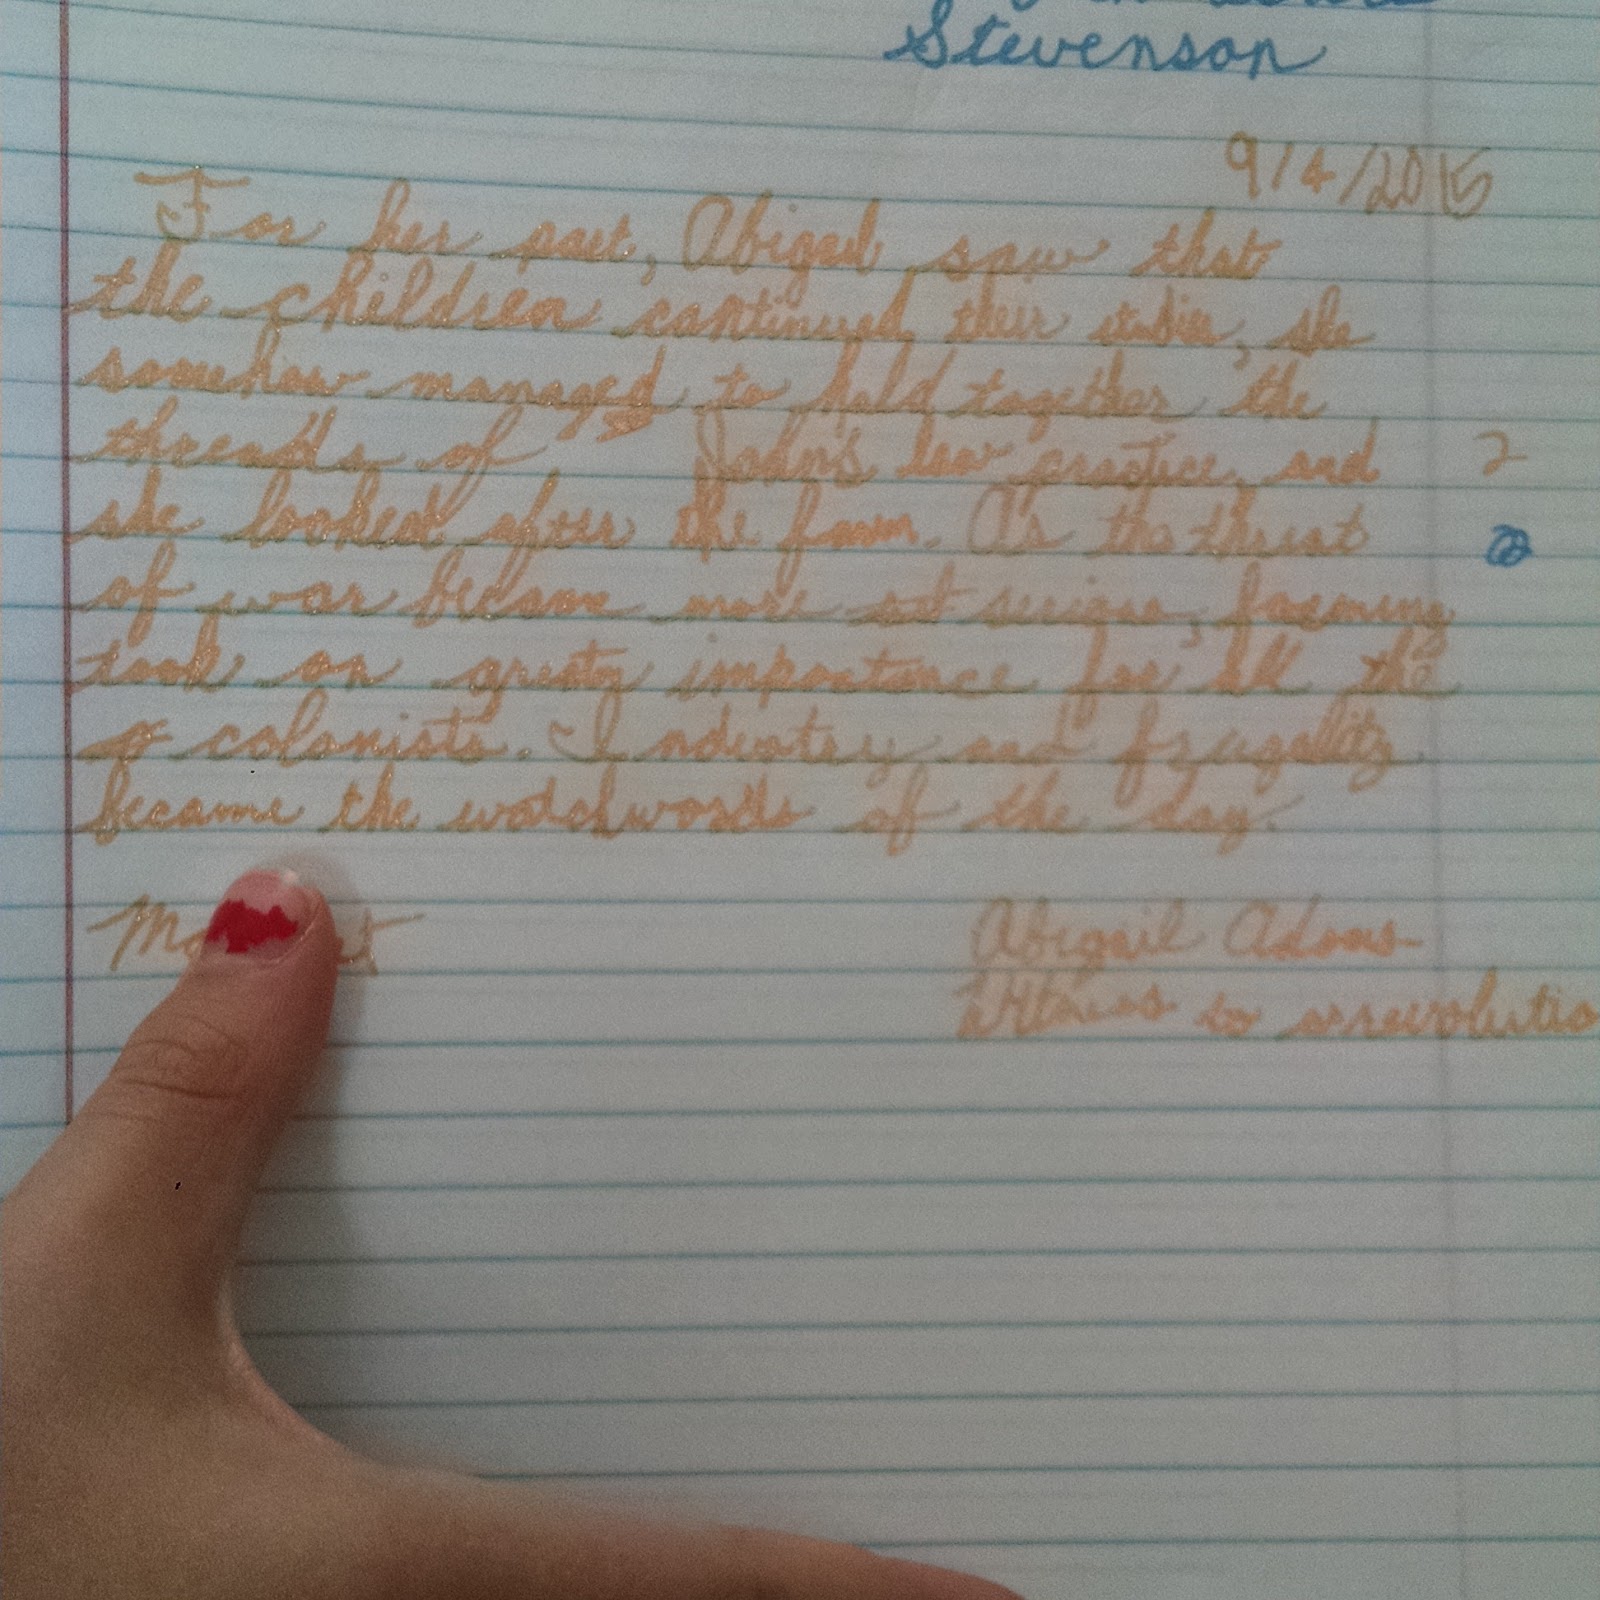 Stevenson
9/4/2015
For her part, Abigail saw that
the children continued their studies, she
somehow managed to hold together the
threads of John's law practice, and
2
she looked after the farm. As the threat
of war became more serious, farming
took on greaty importance for all the
colonists. Industry and frugality
became the watchwords of the day.
Abigail Adams-
Witness to a revolutio